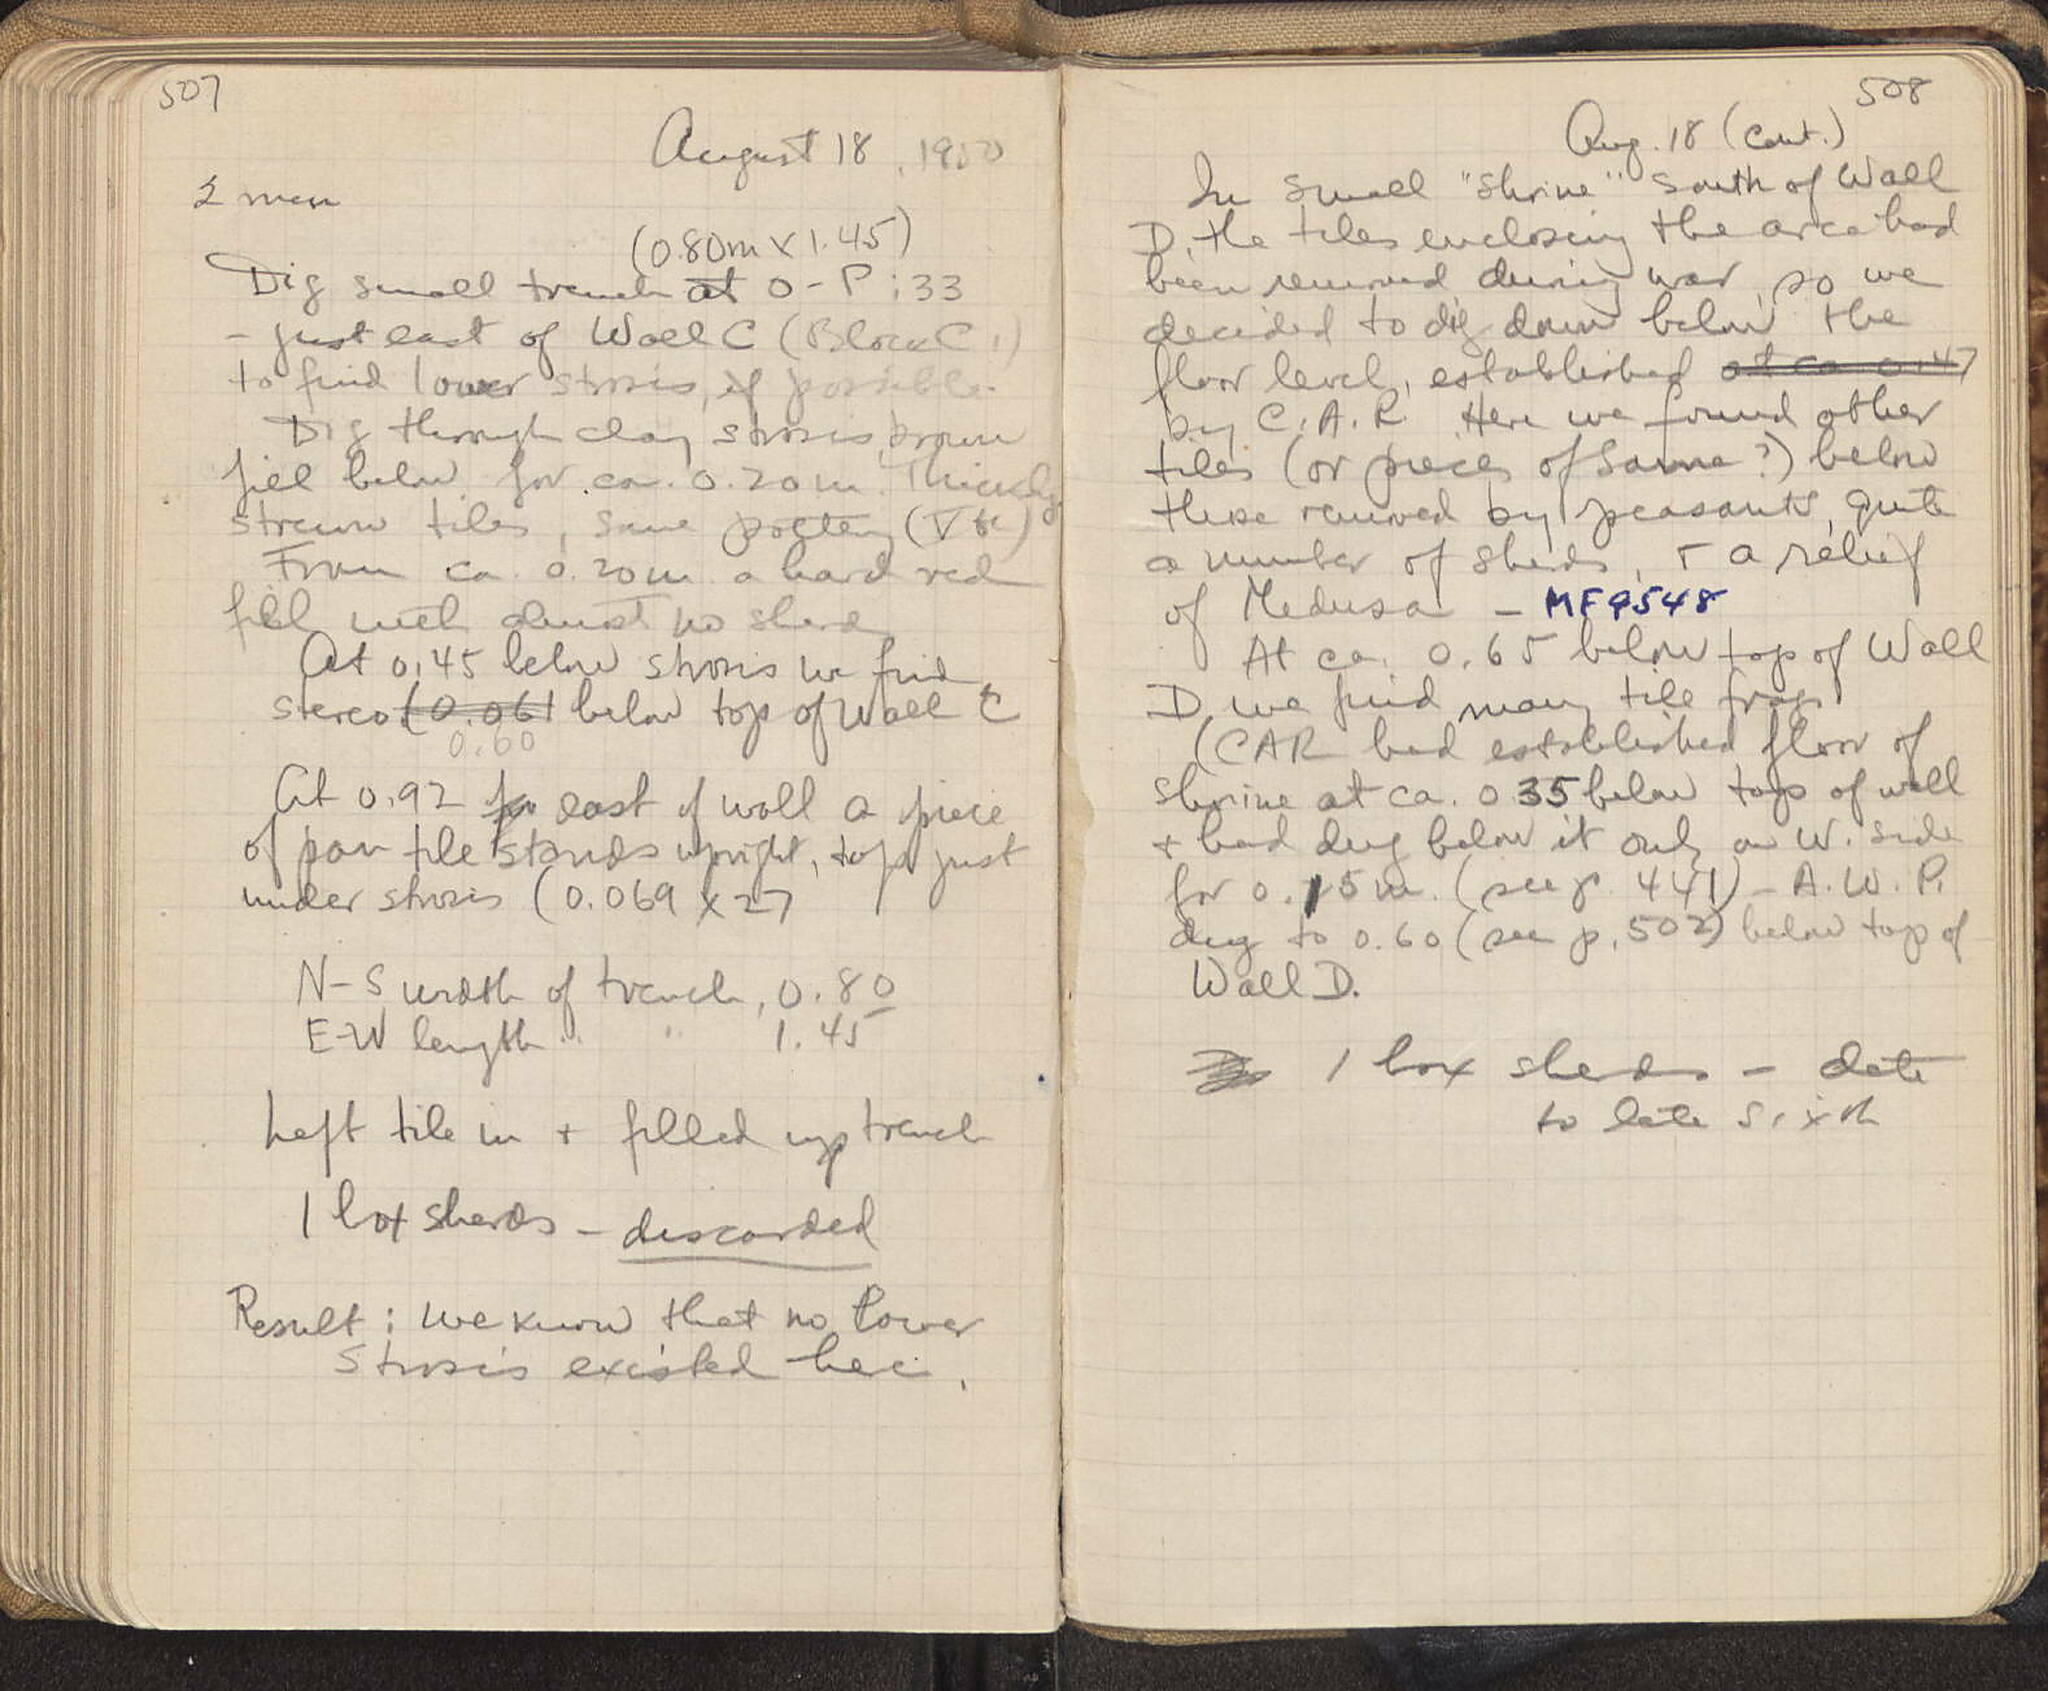 507
August 18, 1950
2 men
(0.80m x 1.45)
Dig small trench at O-P:33
- just east of Wall C (Block C,)
to find lower strosis, if possible.
Dig through clay strosis, brown
fill below for ca. 0.20m. Thickly
strewn tiles, some pottery (V bc)
From ca. 0.20m a hard red
fill with almost no sherds
At 0.45 below strosis we find
stereo (0.061 below top of Wall C
0.60
At 0.92 east of wall a piece
of pan tile stands upright, top just
under strosis (0.069 x 27
N-S width of trench, 0.80
E-W length " " 1.45
Left tile in + filled up trench
1 box sherds - discarded
Result: we know that no lower
strosis existed here.
508
Aug. 18 (cont.)
In small "shrine" south of Wall
D, the tiles enclosing the area had
been removed during war, so we
decided to dig down below the
floor level, established at ca 0.47
by C.A.R. Here we found other
tiles (or pieces of same?) below
those removed by peasants, quite
a number of sherds, + a relief
of Medusa - MF9548
At ca. 0.65 below top of Wall
D we find many tile frags.
(CAR had established floor of
shrine at ca. 0.35 below top of wall
+ had dug below it only on W. side
for 0.15m. (see p. 441) - A.W.P.
dug to 0.60 (see p. 502) below top of
Wall D.
1 box sherds - date
to late sixth